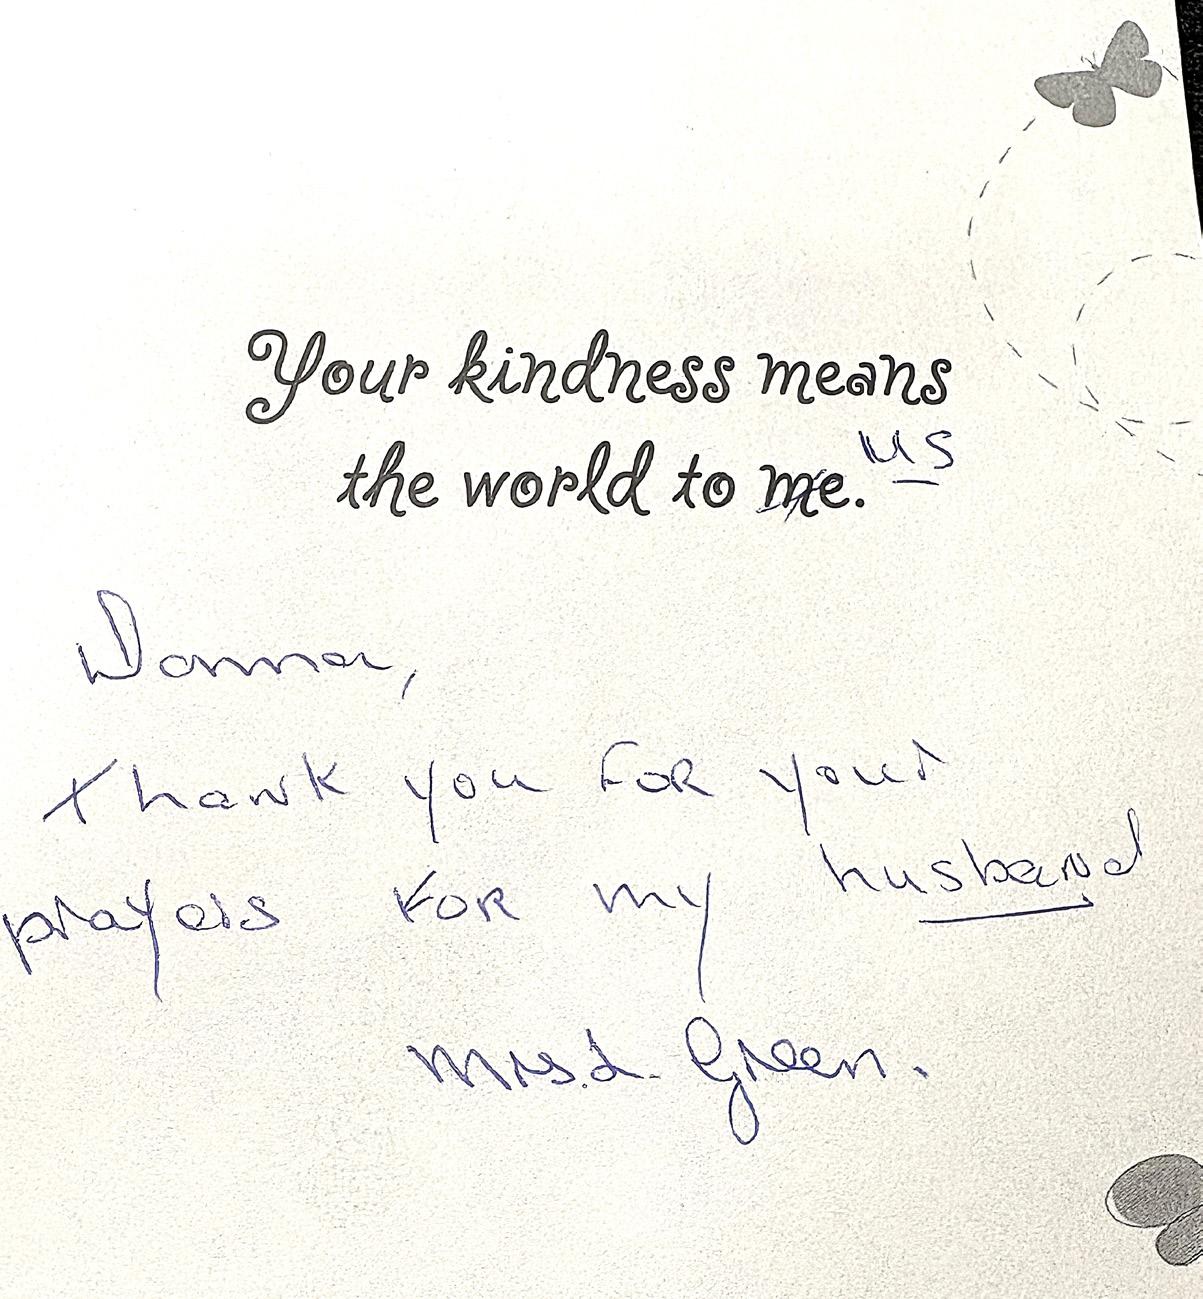 Your kindness means
the world to me. us
Donna,
thank you for your
prayers for my husband
Mrs. L. Green.